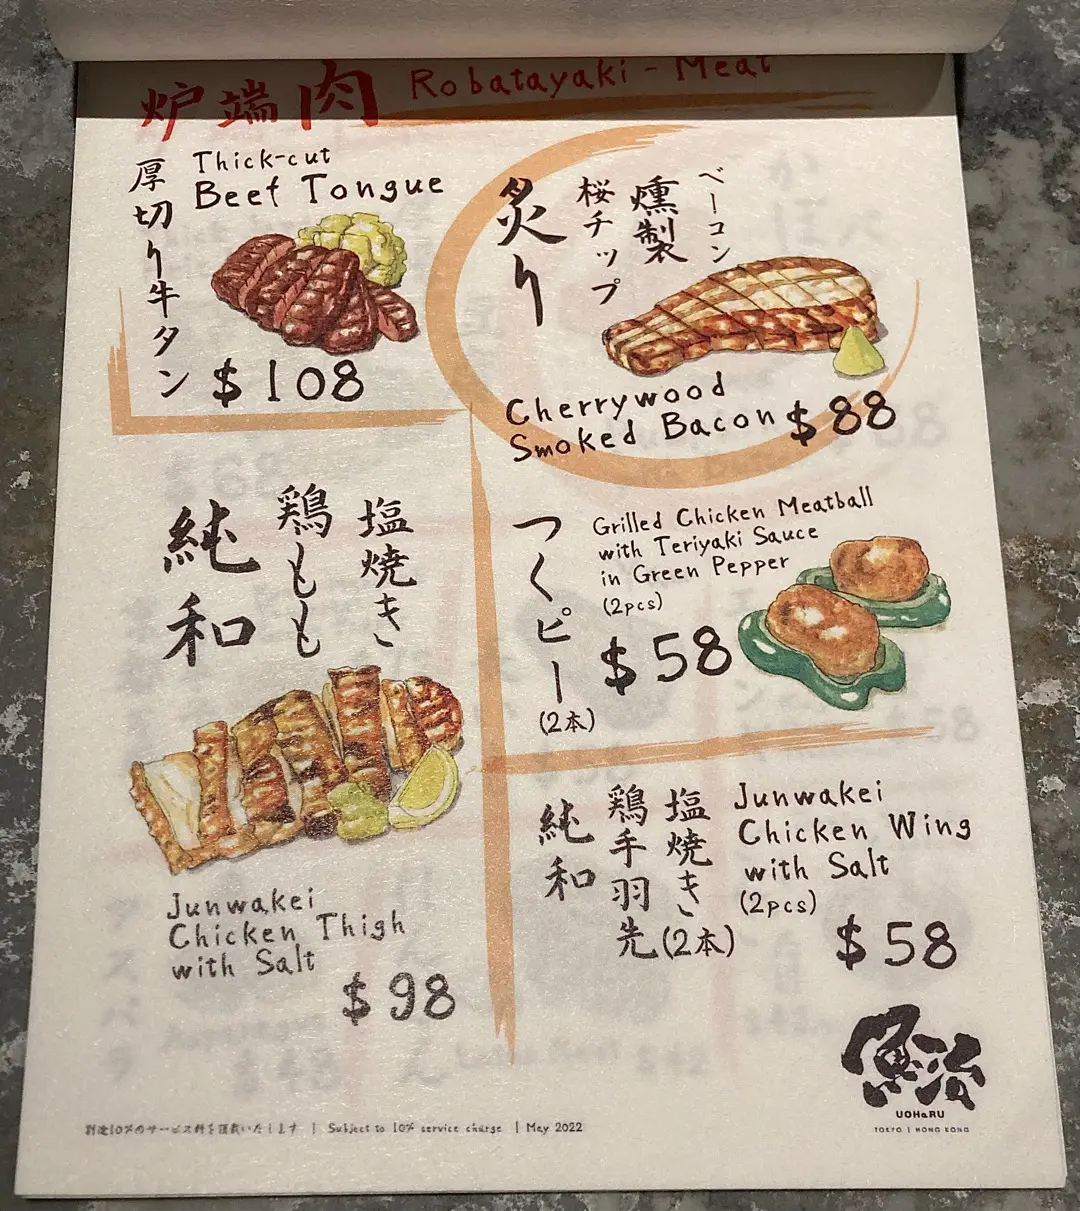 炉端 肉 Robatayaki - Meat
厚切り牛タン
Thick-cut
Beef Tongue
$108
炙り
桜チップ
燻製
ベーコン
Cherrywood
Smoked Bacon $88
純和
鶏もも
塩焼き
Junwakei
Chicken Thigh
with Salt
$98
つくピー
(2本)
Grilled Chicken Meatball
with Teriyaki Sauce
in Green Pepper
(2pcs)
$58
純和
鶏手羽先
塩焼き(2本)
Junwakei
Chicken Wing
with Salt
(2pcs)
$58
魚治
UOHaRU
TOKYO | HONG KONG
別途10%のサービス料を頂戴いたします | Subject to 10% service charge | May 2022